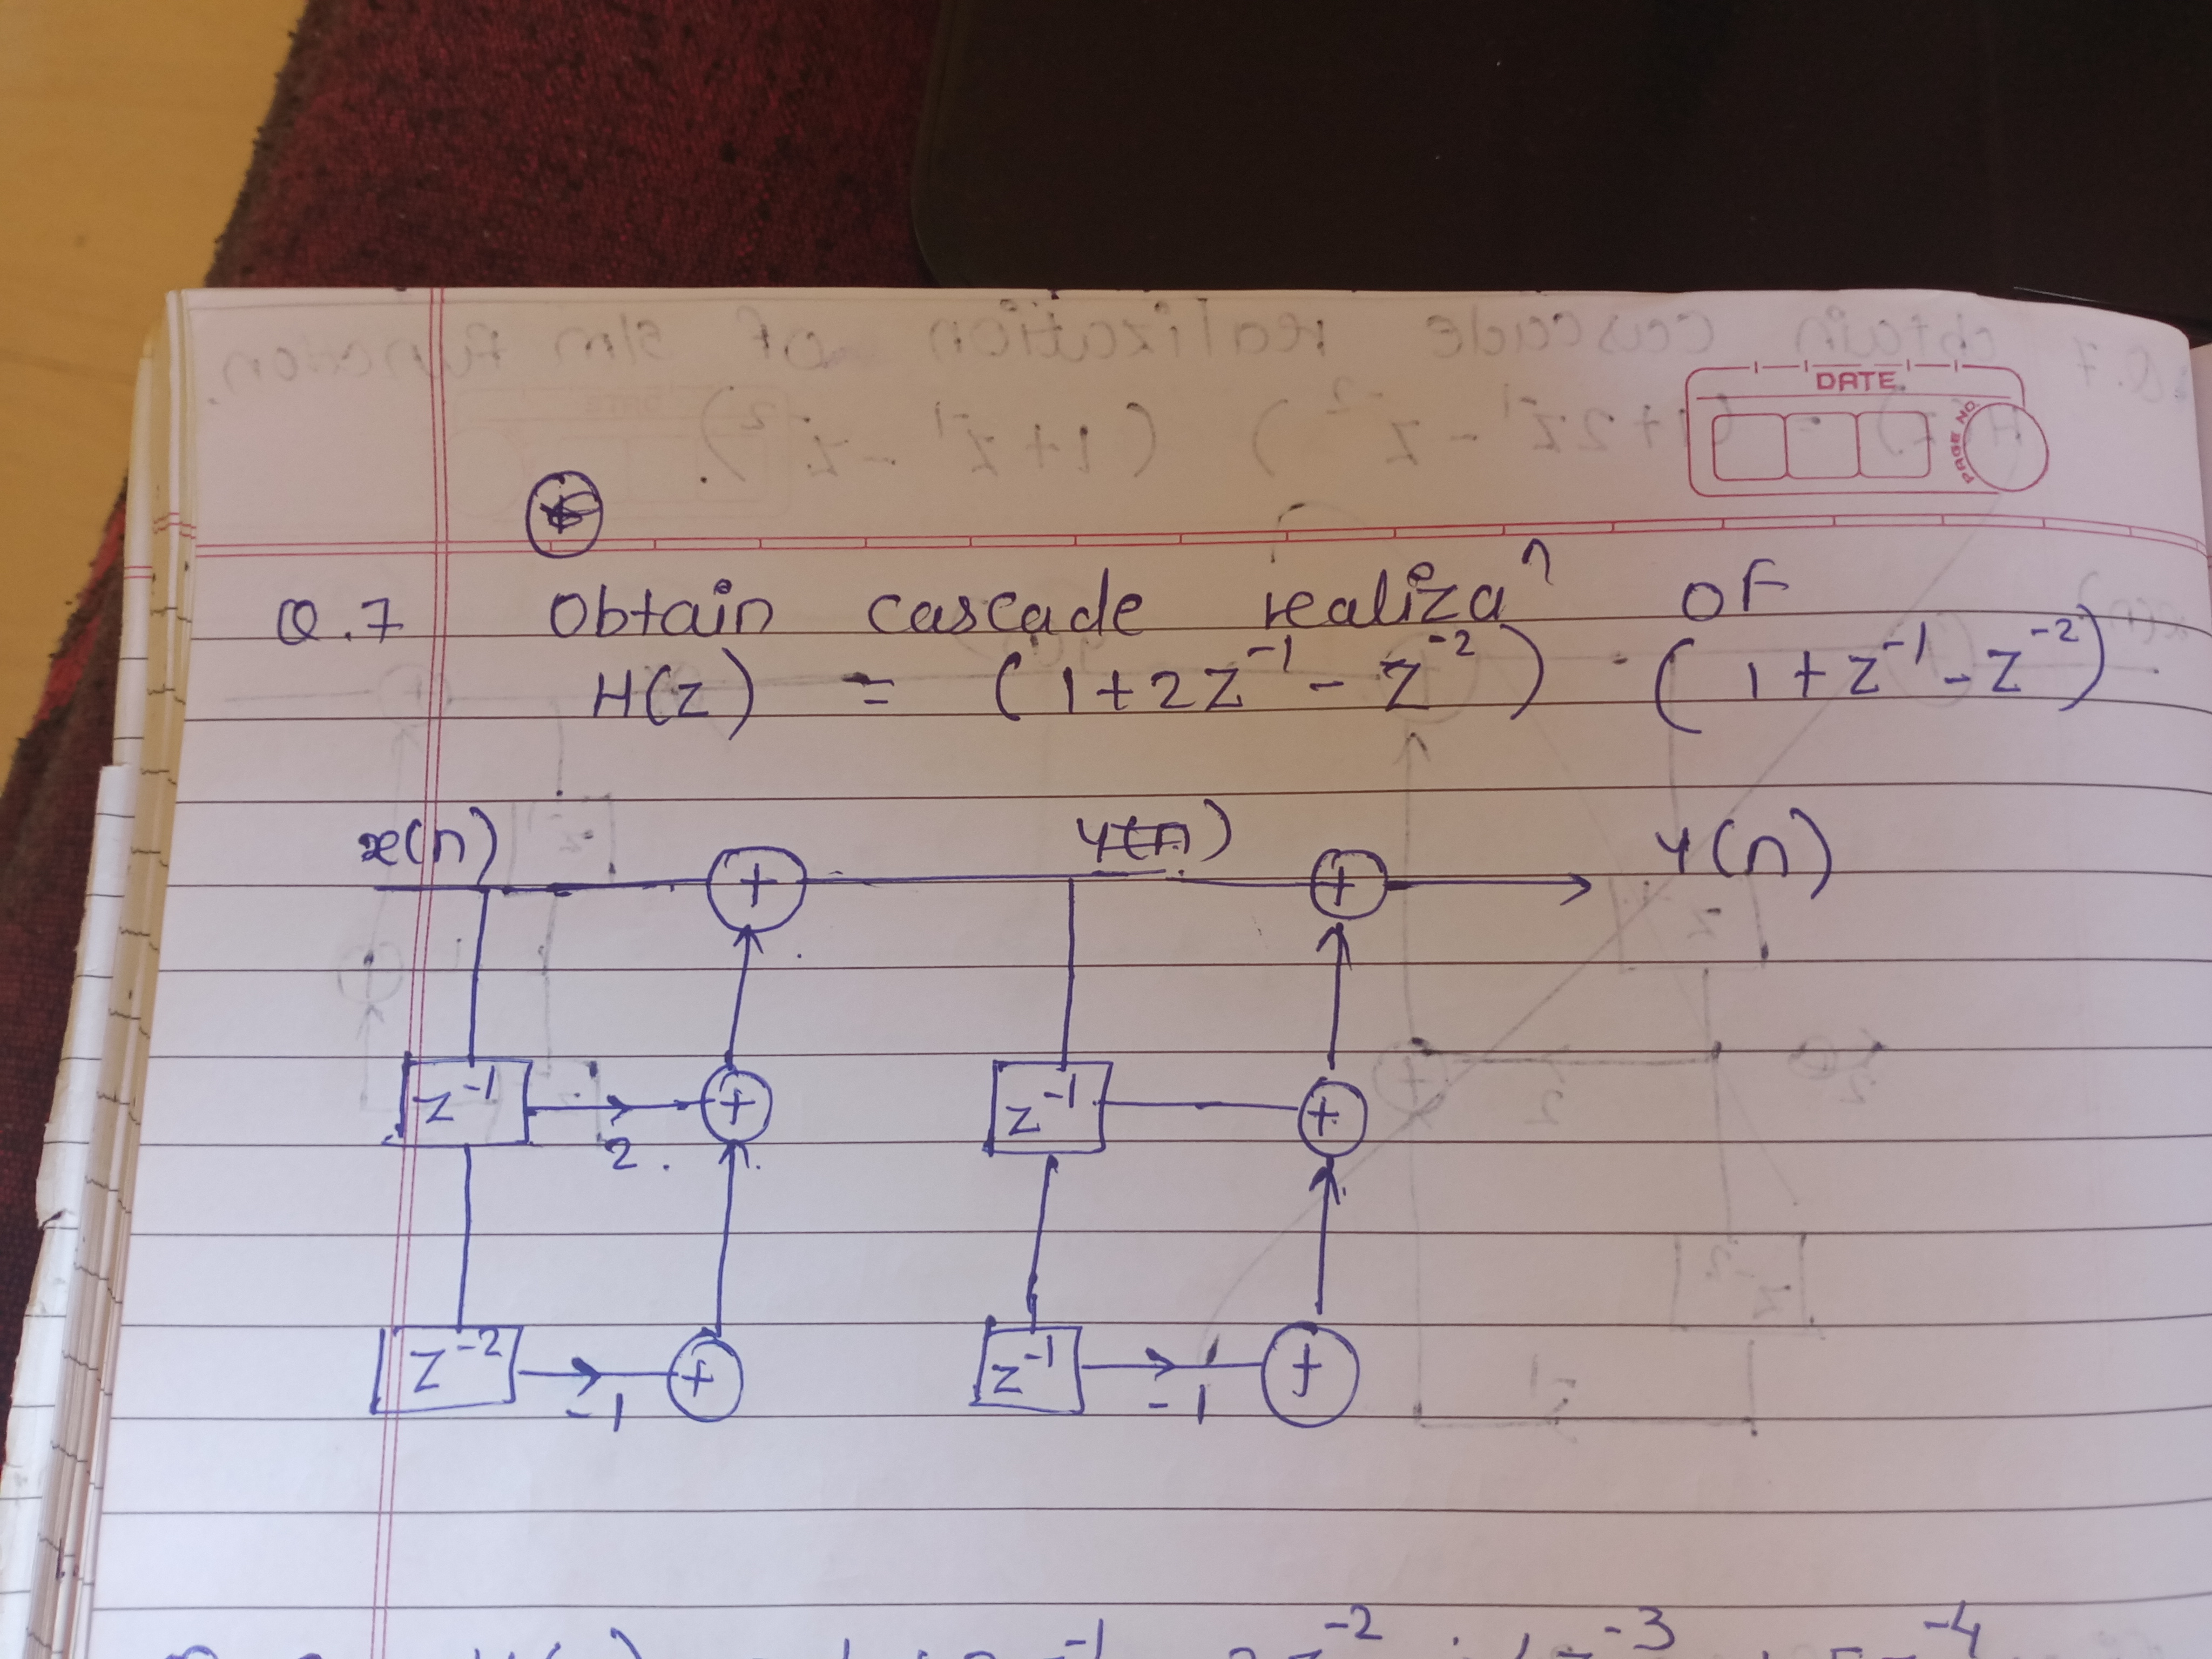 DATE
PAGE NO.
Q.7 Obtain cascade realizaⁿ of
H(z) = (1+2z⁻¹ - z⁻²) · (1+z⁻¹ - z⁻²)
x(n) y(n) y(n)
+ +
z⁻¹ 2 + z⁻¹ +
z⁻² -1 + z⁻¹ -1 +